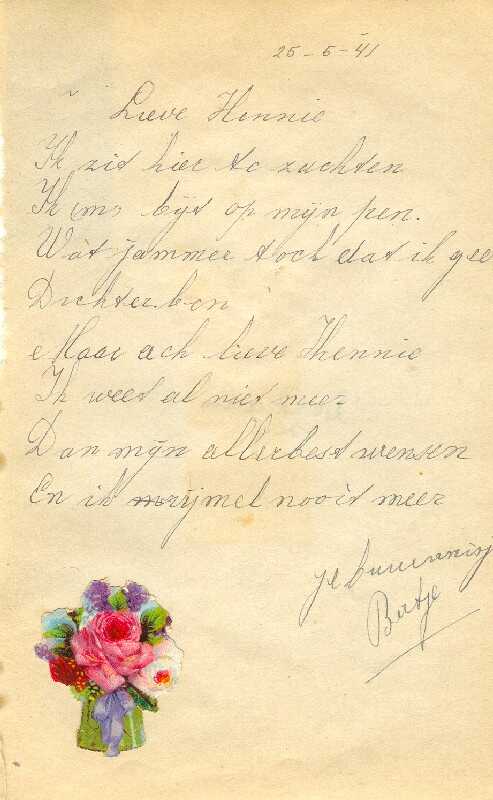 25-5-41
Lieve Hennie
Ik zit hier te zuchten
Ik bijt op mijn pen.
Wat jammer toch dat ik gee
Dichter ben
Maar ach lieve Hennie
Ik weet al niet meer
Dan mijn allerbest wensen
En ik rijmel nooit meer
je buurmeisje
Bertje